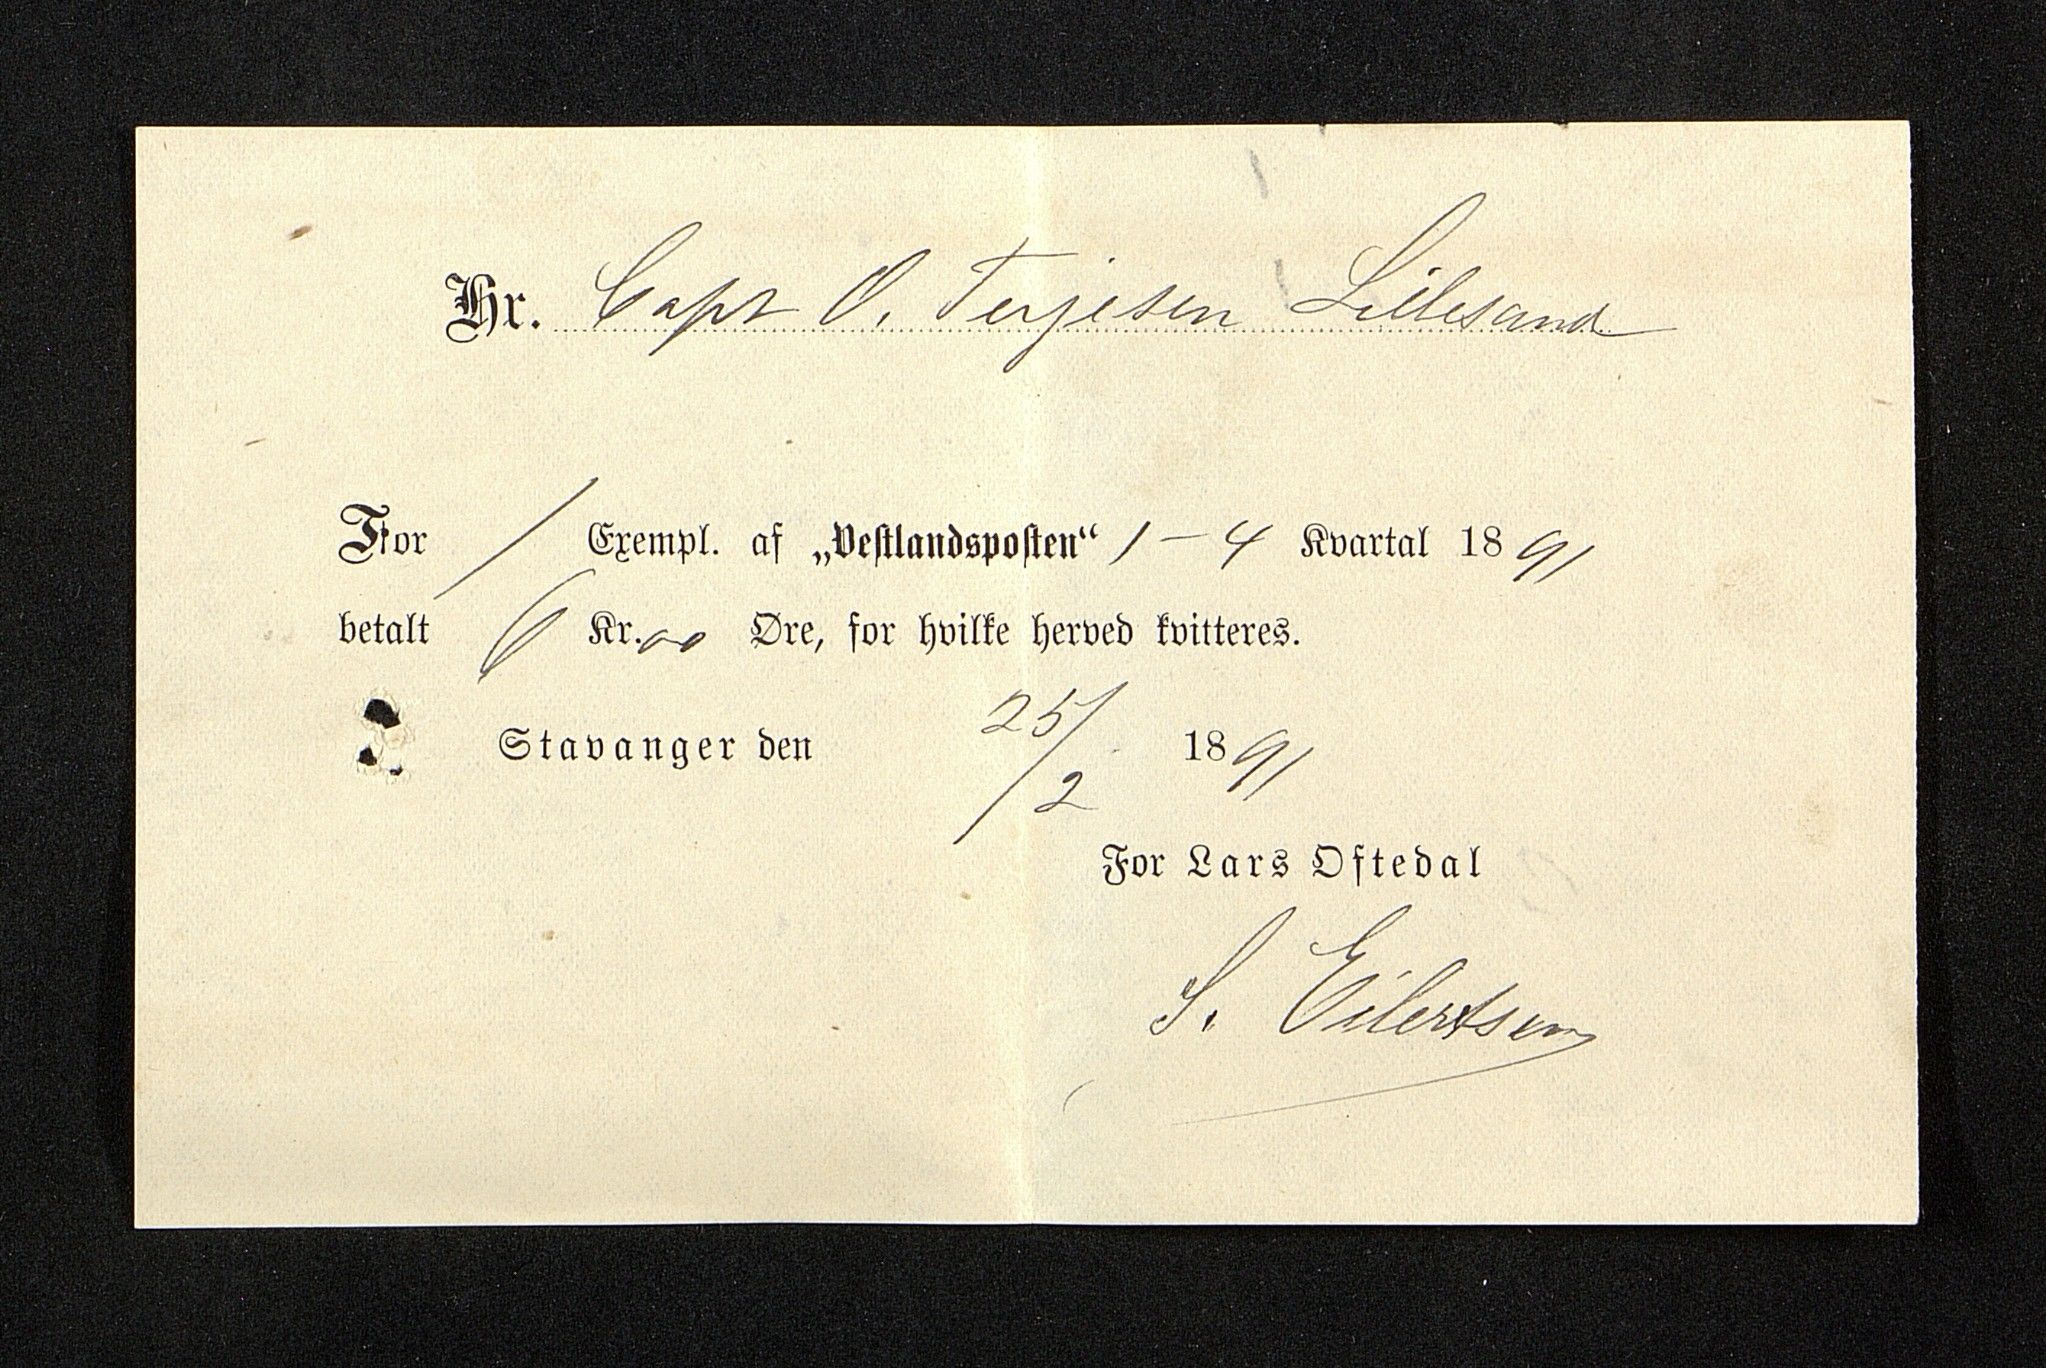 Hr. Capt O. Terjesen Lillesand
For 1 Exempl. af „Vestlandsposten“ 1 – 4 Kvartal 1891
betalt 6 Kr. 00 Øre, for hvilke herved kvitteres.
Stavanger den 25/2 1891
For Lars Oftedal
S. Eilertsen